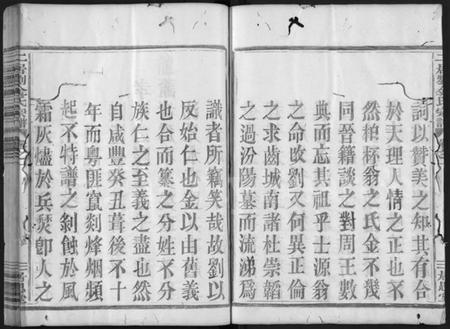 詞以贊美之知其有合
於天理人情之正也不
然祖懷翁之氏金不幾
同晉籍談之對周王數
典而忘其祖乎士源翁
之命歟劉又何異正倫
之求齒城南諸杜崇韜
之過汾陽墓而流涕為
識者所竊笑哉故劉以
反始仁也金以由舊義
也合而纂之分姓不分
族仁之至義之盡也然
自咸豐癸丑葺後不十
年而粵匪竄剡烽烟頻
起不特譜之剝蝕於風
霜灰燼於兵燹即人之